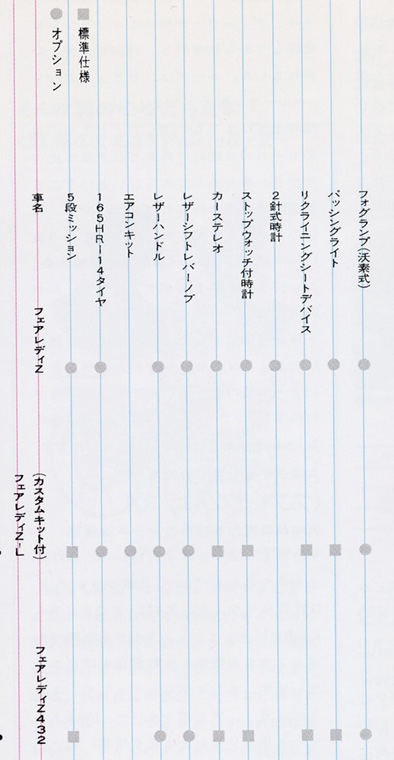 ■標準仕様
●オプション
フォグランプ(沃素式)
パッシングライト
リクライニングシートデバイス
2針式時計
ストップウォッチ付時計
カーステレオ
レザーシフトレバーノブ
レザーハンドル
エアコンキット
165HR-14タイヤ
5段ミッション
車名
フェアレディZ
(カスタムキット付)
フェアレディZ-L
フェアレディZ432